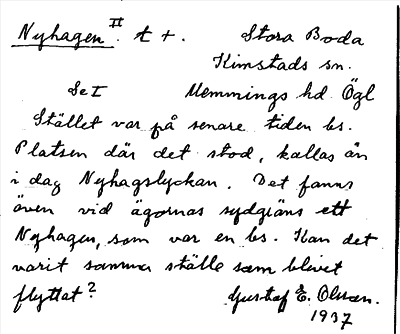 Nyhagen II. t +. Stora Boda
Kimstads sn.
Se I Memmings hd Ögl
Stället var på senare tiden bs.
Platsen där det stod, kallas än
i dag Nyhagslyckan. Det fanns
även vid ägornas sydgräns ett
Nyhagen, som var en bs. Kan det
varit samma ställe som blivet
flyttat? Gustaf E. Olsson.
1937